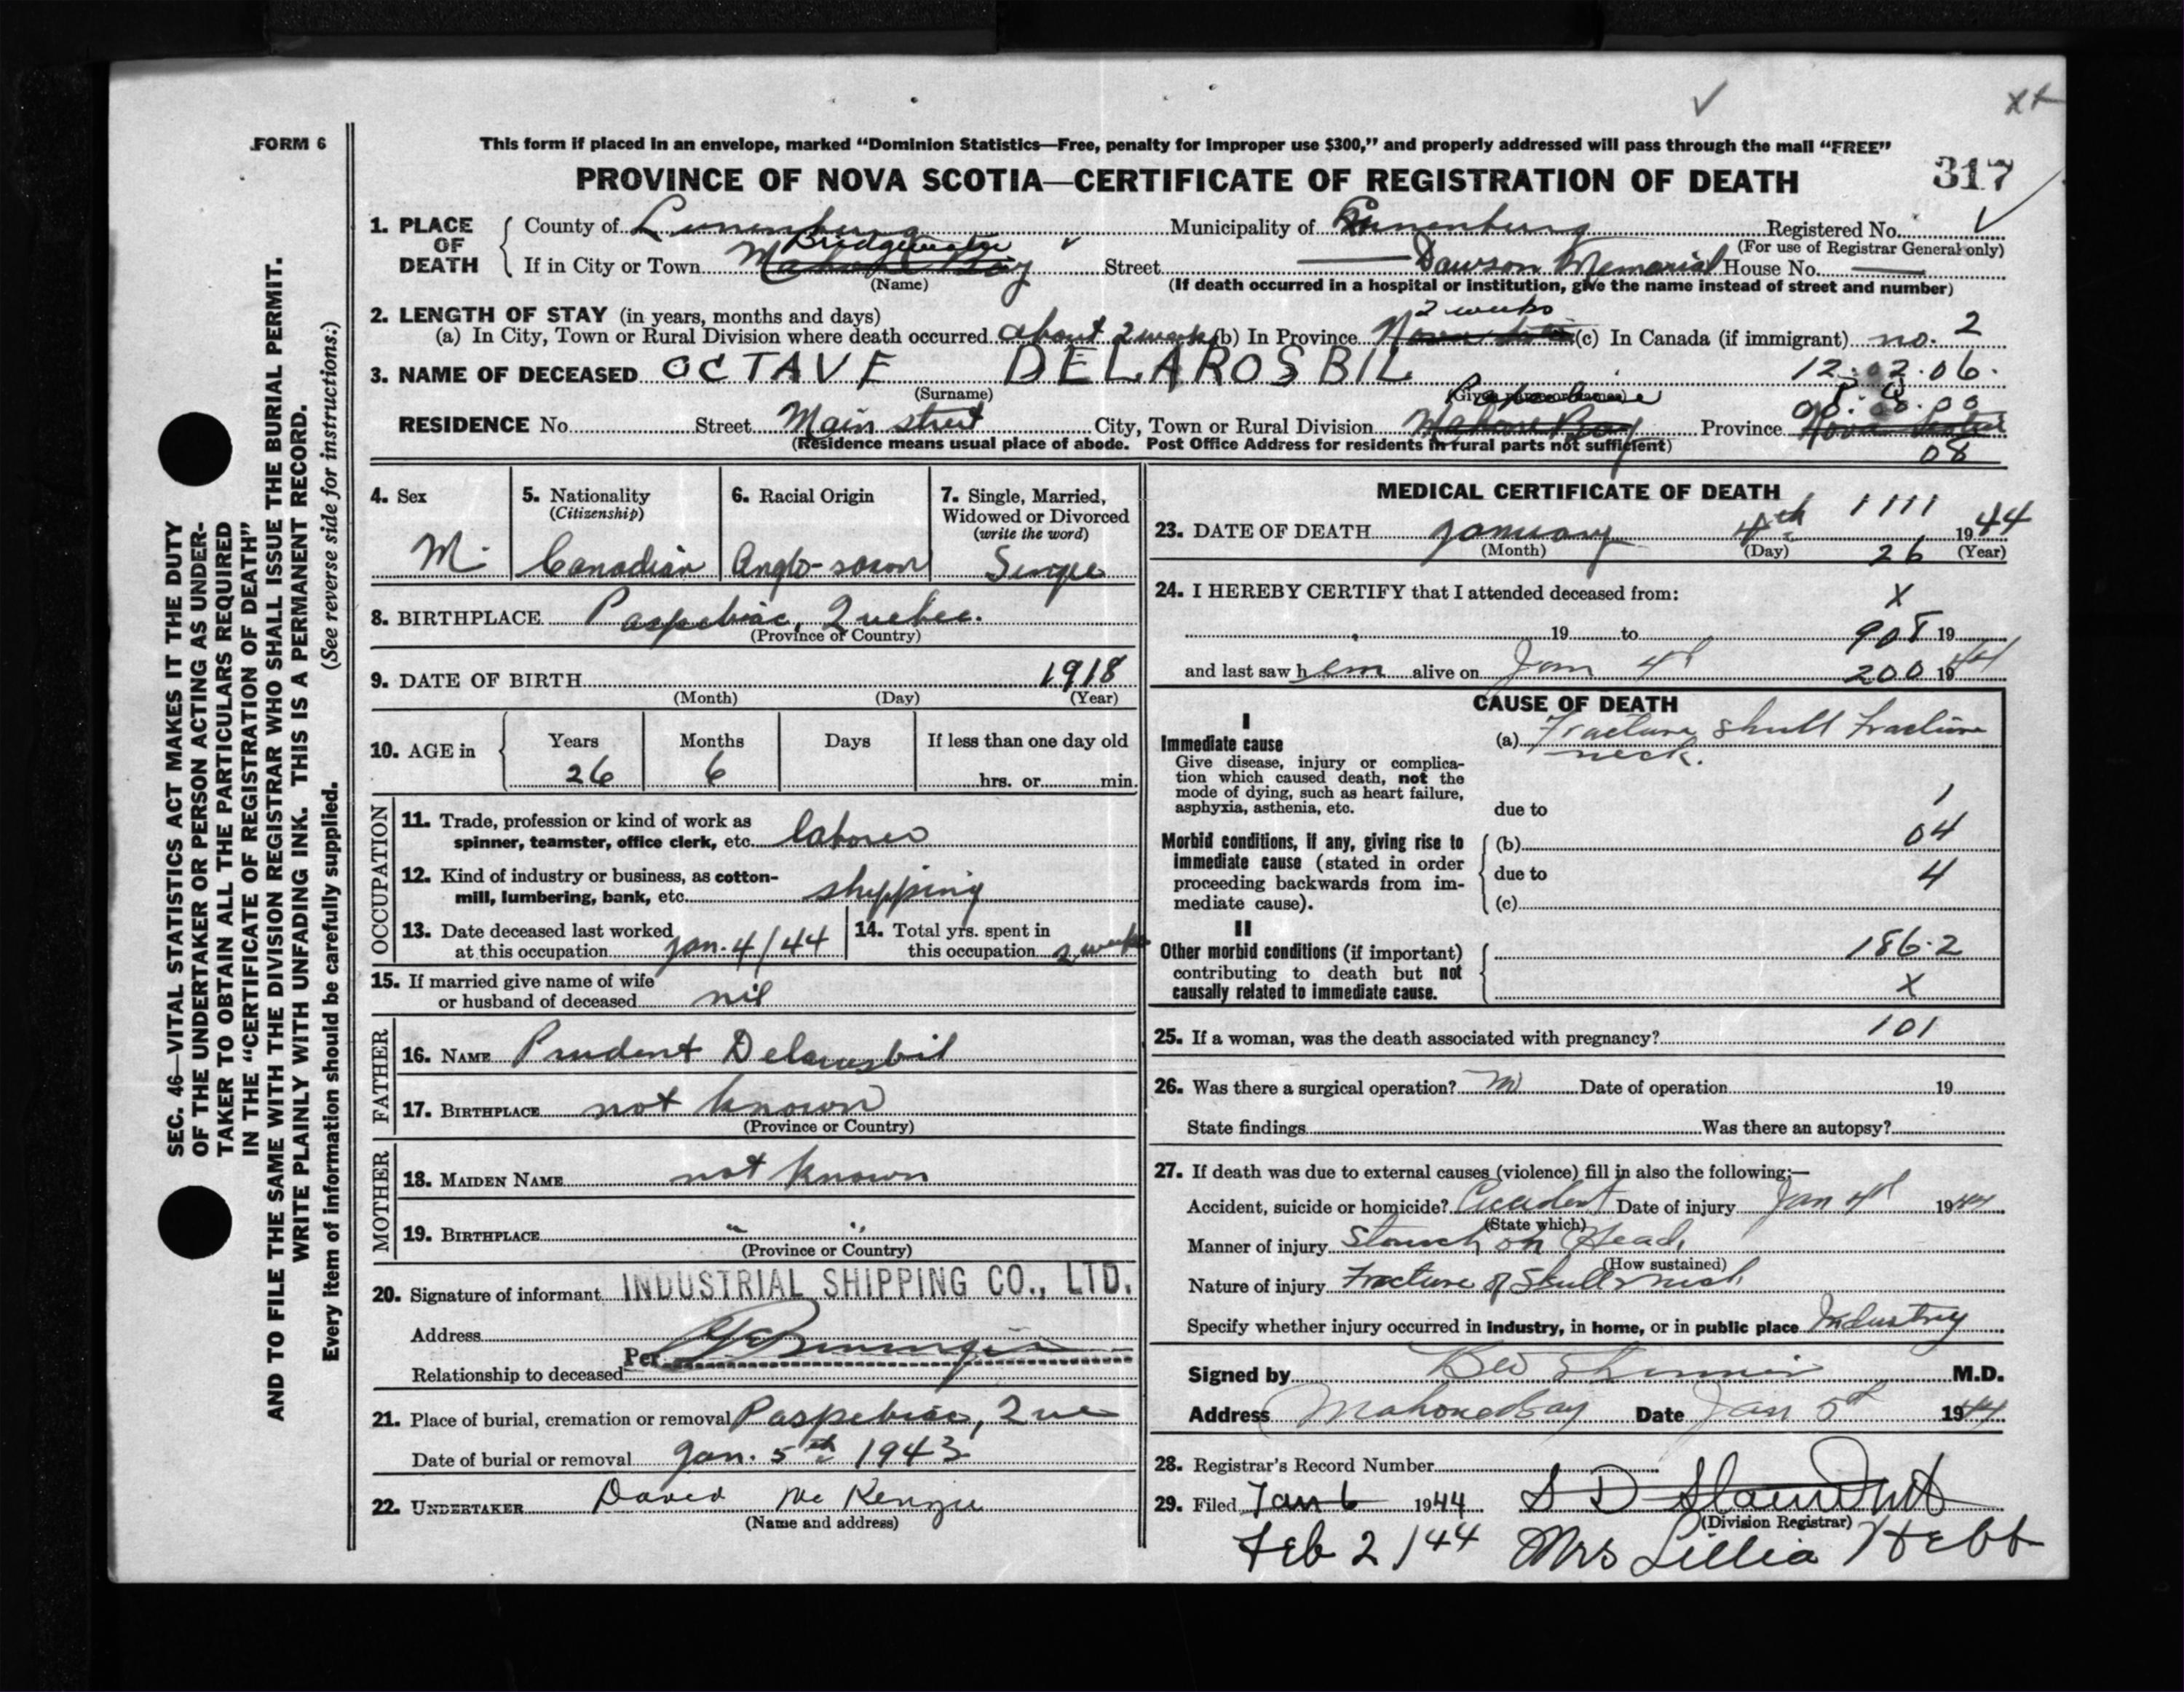 FORM 6
This form if placed in an envelope, marked “Dominion Statistics—Free, penalty for improper use $300,” and properly addressed will pass through the mail “FREE”
PROVINCE OF NOVA SCOTIA—CERTIFICATE OF REGISTRATION OF DEATH
317
1. PLACE OF DEATH
County of Lunenburg Municipality of Lunenburg Registered No.
(For use of Registrar General only)
Bridgewater
If in City or Town Mahone Bay Street — Dawson Memorial House No. —
(Name) (If death occurred in a hospital or institution, give the name instead of street and number)
2. LENGTH OF STAY (in years, months and days)
2 weeks
(a) In City, Town or Rural Division where death occurred about 2 weeks (b) In Province Nova Scotia (c) In Canada (if immigrant) no. 2
3. NAME OF DECEASED OCTAVE DELAROSBIL 12.02.06.
(Surname) (Given name or names)
Paspebiac
RESIDENCE No. Street Main street City, Town or Rural Division Mahone Bay Province Nova Scotia
(Residence means usual place of abode. Post Office Address for residents in rural parts not sufficient)
08
4. Sex
M.
5. Nationality
(Citizenship)
Canadian
6. Racial Origin
Anglo-saxon
7. Single, Married,
Widowed or Divorced
(write the word)
Single
8. BIRTHPLACE Paspebiac, Quebec.
(Province or Country)
9. DATE OF BIRTH 1918
(Month) (Day) (Year)
10. AGE in
Years Months Days If less than one day old
26 6 hrs. or min.
OCCUPATION
11. Trade, profession or kind of work as
spinner, teamster, office clerk, etc. laborer
12. Kind of industry or business, as cotton-
mill, lumbering, bank, etc. shipping
13. Date deceased last worked
at this occupation Jan. 4/44
14. Total yrs. spent in
this occupation 2 weeks
15. If married give name of wife
or husband of deceased nil
FATHER
16. NAME Prudent Delarosbil
17. BIRTHPLACE not known
(Province or Country)
MOTHER
18. MAIDEN NAME not known
19. BIRTHPLACE " "
(Province or Country)
20. Signature of informant INDUSTRIAL SHIPPING CO., LTD.
Address
Per
Relationship to deceased
21. Place of burial, cremation or removal Paspebiac, Que
Date of burial or removal Jan. 5th 1943
22. UNDERTAKER David McKenzie
(Name and address)
MEDICAL CERTIFICATE OF DEATH
1111
23. DATE OF DEATH January 4th 1944
(Month) (Day) (Year)
26
24. I HEREBY CERTIFY that I attended deceased from:
X
19 to 908 19
and last saw him alive on Jan 4th 200 1944
CAUSE OF DEATH
I
Immediate cause
Give disease, injury or complica-
tion which caused death, not the
mode of dying, such as heart failure,
asphyxia, asthenia, etc.
(a) Fracture skull Fracture
neck.
1
due to
04
Morbid conditions, if any, giving rise to
immediate cause (stated in order
proceeding backwards from im-
mediate cause).
(b)
due to 4
(c)
II
Other morbid conditions (if important)
contributing to death but not
causally related to immediate cause.
186.2
X
25. If a woman, was the death associated with pregnancy? 101
26. Was there a surgical operation? no Date of operation 19
State findings Was there an autopsy?
27. If death was due to external causes (violence) fill in also the following:—
Accident, suicide or homicide? Accident Date of injury Jan 4th 1944
(State which)
Manner of injury Struck on Head
(How sustained)
Nature of injury Fracture of Skull & neck
Specify whether injury occurred in industry, in home, or in public place Industry
Signed by M.D.
Address Mahone Bay Date Jan 5th 1944
28. Registrar's Record Number
29. Filed Jan 6 1944
(Division Registrar)
Feb 2/44 Mrs Lillia Hebb
SEC. 46—VITAL STATISTICS ACT MAKES IT THE DUTY
OF THE UNDERTAKER OR PERSON ACTING AS UNDER-
TAKER TO OBTAIN ALL THE PARTICULARS REQUIRED
IN THE “CERTIFICATE OF REGISTRATION OF DEATH”
AND TO FILE THE SAME WITH THE DIVISION REGISTRAR WHO SHALL ISSUE THE BURIAL PERMIT.
WRITE PLAINLY WITH UNFADING INK. THIS IS A PERMANENT RECORD.
Every item of information should be carefully supplied. (See reverse side for instructions:)